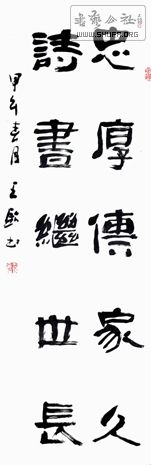 忠厚傳家久
詩書繼世長
甲午春月王歐书
書藝公社
WWW.SHUFA.ORG